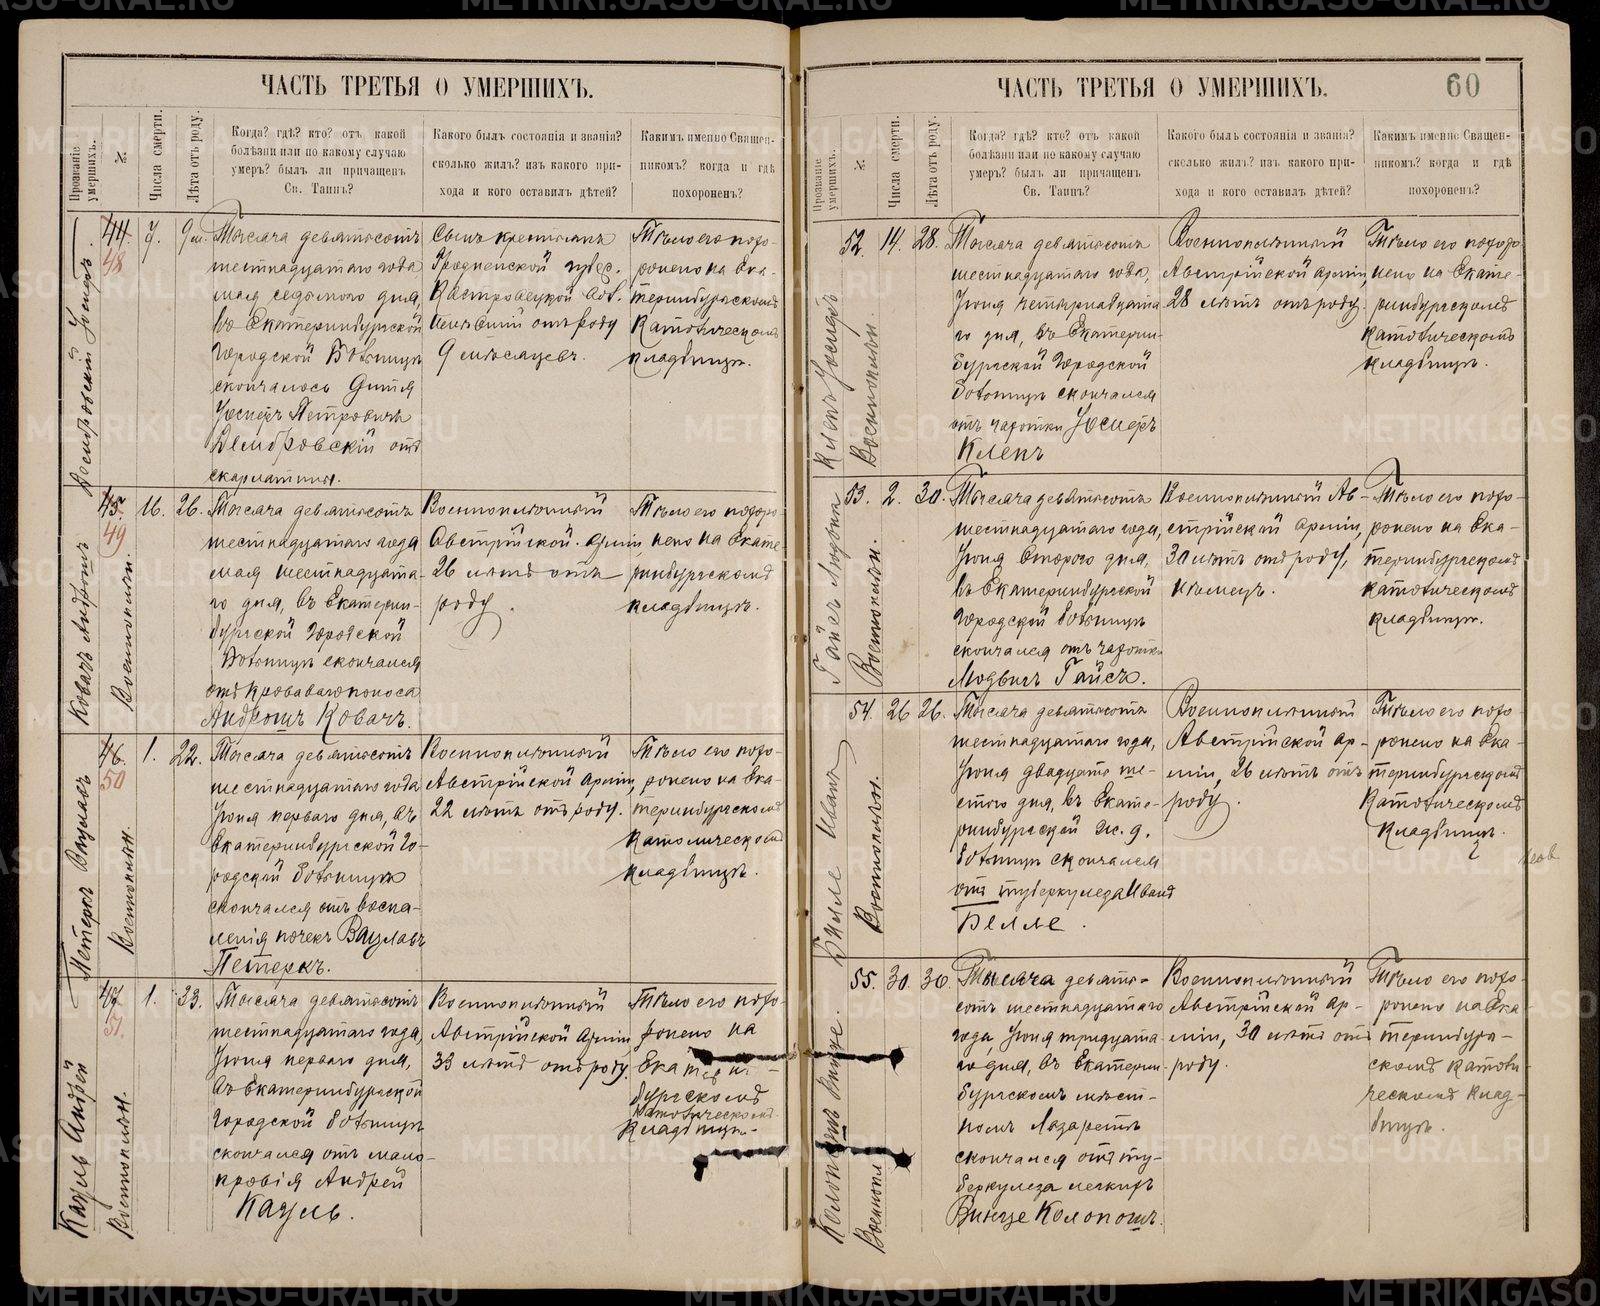 ЧАСТЬ ТРЕТЬЯ О УМЕРШИХЪ.
Прозваніе умершихъ.
№.
Числа смерти.
Лѣта отъ роду.
Когда? гдѣ? кто? отъ какой
болѣзни или по какому случаю
умеръ? былъ ли причащенъ
Св. Таинъ?
Какого былъ состоянія и званія?
сколько жилъ? изъ какого при-
хода и кого оставилъ дѣтей?
Какимъ именно Священ-
никомъ? когда и гдѣ
похороненъ?
44.
48
7.
9 м.
Тысяча девятьсотъ
шестнадцатаго года
мая седьмого дня,
въ Екатеринбургской
Городской Больницѣ
скончалось Дитя
Іосифъ Петровичъ
отъ
скарлатины.
Сынъ крестьянъ
Гродненской губ.
отъ роду
9 мѣсяцевъ.
Тѣло его похо-
ронено на Ека-
теринбургскомъ
Католическомъ
кладбищѣ.
Ковачъ Андрошъ
Военноплѣн.
45.
49
16.
26.
Тысяча девятьсотъ
шестнадцатаго года
мая шестнадцата-
го дня, въ Екатерин-
бургской Городской
Больницѣ скончался
отъ кроваваго поноса
Андрошъ Ковачъ.
Военноплѣнный
Австрійской Арміи
26 лѣтъ отъ
роду.
Тѣло его похоро-
нено на Екате-
ринбургскомъ
кладбищѣ.
Петеркъ Вацлавъ
Военноплѣн.
46.
50
1.
22.
Тысяча девятьсотъ
шестнадцатаго года
Іюня перваго дня, въ
Екатеринбургской Го-
родской больницѣ
скончался отъ воспа-
ленія почекъ Вацлавъ
Петеркъ.
Военноплѣнный
Австрійской Арміи,
22 лѣтъ отъ роду.
Тѣло его похо-
ронено на Ека-
теринбургскомъ
католическомъ
кладбищѣ.
Кацль Андрей
Военноплѣн.
47.
51.
1.
33.
Тысяча девятьсотъ
шестнадцатаго года,
Іюня перваго дня,
въ Екатеринбургской
Городской больницѣ
скончался отъ мало-
кровія Андрей
Кацль.
Военноплѣнный
Австрійской Арміи,
33 лѣтъ отъ роду.
Тѣло его похо-
ронено на
Екатерин-
бургскомъ
католическомъ
кладбищѣ.
ЧАСТЬ ТРЕТЬЯ О УМЕРШИХЪ.
60
Прозваніе умершихъ.
№.
Числа смерти.
Лѣта отъ роду.
Когда? гдѣ? кто? отъ какой
болѣзни или по какому случаю
умеръ? былъ ли причащенъ
Св. Таинъ?
Какого былъ состоянія и званія?
сколько жилъ? изъ какого при-
хода и кого оставилъ дѣтей?
Какимъ именно Священ-
никомъ? когда и гдѣ
похороненъ?
Кленъ Іосифъ
Военноплѣн.
52.
14.
28.
Тысяча девятьсотъ
шестнадцатаго года,
Іюня четырнадцата
го дня, въ Екатерин-
бургской Городской
больницѣ скончался
отъ чахотки Іосифъ
Кленъ
Военноплѣнный
Австрійской Арміи,
28 лѣтъ отъ роду.
Тѣло его похоро
нено на Екате-
ринбургскомъ
католическомъ
кладбищѣ.
Гайсъ Людвигъ
Военноплѣн.
53.
2.
30.
Тысяча девятьсотъ
шестнадцатаго года,
Іюня второго дня,
въ Екатеринбургской
Городской больницѣ
скончался отъ чахотки
Людвигъ Гайсъ.
Военноплѣнный Ав-
стрійской Арміи,
30 лѣтъ отъ роду,
нѣмецъ.
Тѣло его похо-
ронено на Ека-
теринбургскомъ
католическомъ
кладбищѣ.
Билле Иванъ
Военноплѣн.
54.
26
26.
Тысяча девятьсотъ
шестнадцатаго года,
Іюня двадцать ше-
стого дня, въ Екате-
ринбургской ж. д.
больницѣ скончался
отъ туберкулеза Иванъ
Белле.
Военноплѣнный
Австрійской Ар-
міи, 26 лѣтъ отъ
роду.
Тѣло его похо-
ронено на Ека-
теринбургскомъ
Католическомъ
кладбищѣ.
Колопошъ Винце.
Военнопл
55.
30.
30.
Тысяча девять-
сотъ шестнадцатаго
года, Іюня тридцата
го дня, въ Екатерин-
бургскомъ мѣст-
номъ Лазаретѣ
скончался отъ ту-
беркулеза легкихъ
Винце Колопошъ.
Военноплѣнный
Австрійской Ар-
міи, 30 лѣтъ отъ
роду.
Тѣло его похо-
ронено на Ека
теринбург-
скомъ католи-
ческомъ клад-
бищѣ.
METRIKI.GASO-URAL.RU